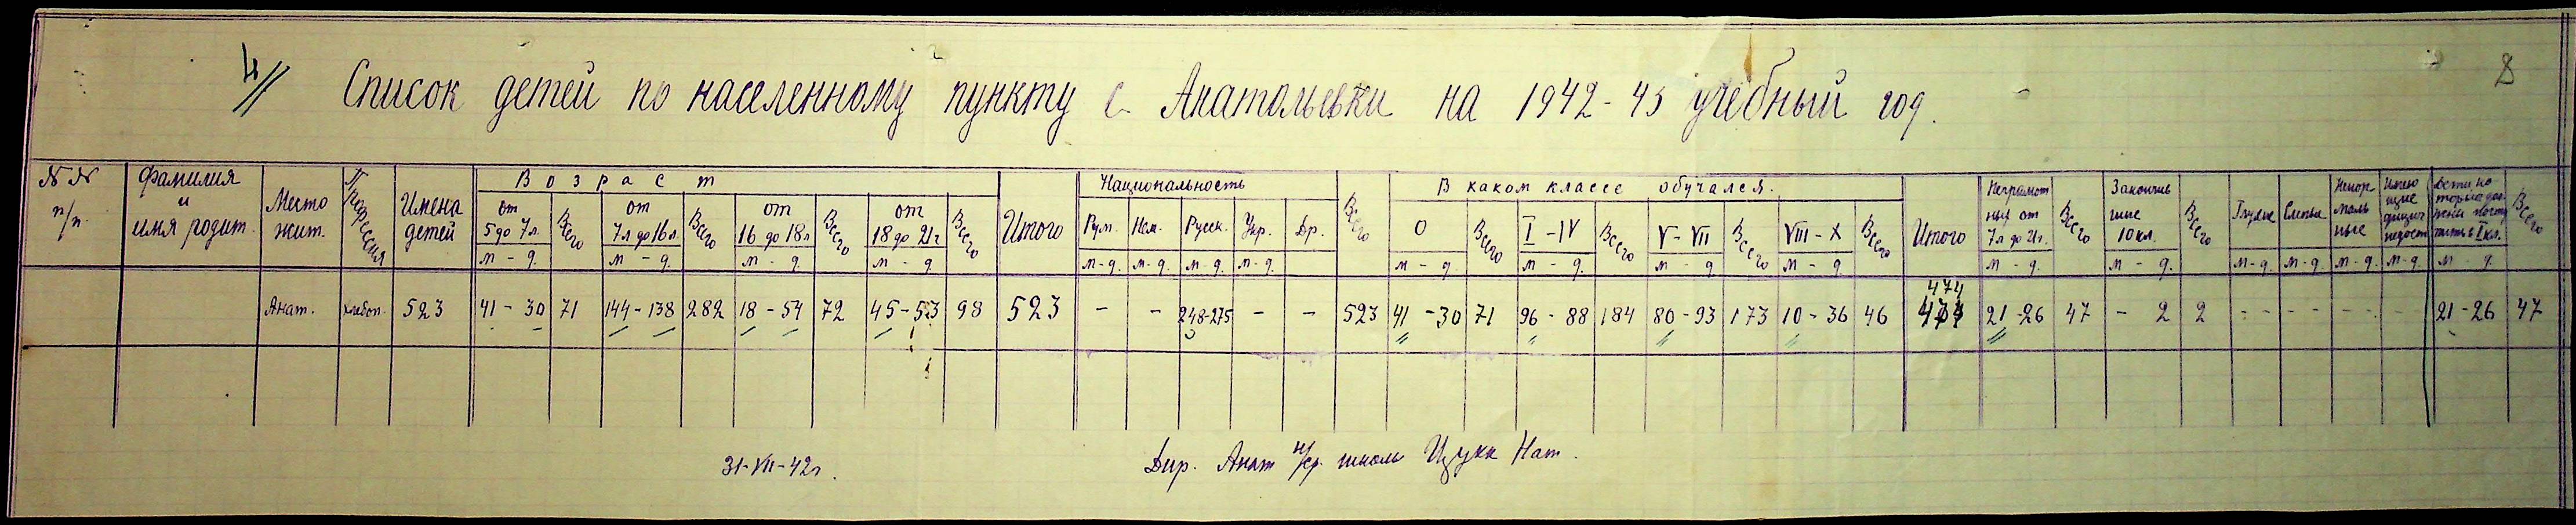 4// Список детей по населенному пункту с. Анатольевки на 1942-43 учебный год.
8
№ №
п/п.
Фамилия
и
имя родит.
Место
жит.
Профессия
Имена
детей
Возраст
от
5 до 7 л.
м - д.
Всего
от
7 л до 16 л.
м - д.
Всего
от
16 до 18 л
м - д.
Всего
от
18 до 21 г
м - д
Всего
Итого
Национальность
Рум.
м - д.
Нем.
м - д.
Русск.
м - д.
Укр.
м - д.
Др.
Всего
В каком классе обучался.
О
м - д
Всего
I - IV
м - д.
Всего
V - VII
м - д
Всего
VIII - X
м - д.
Всего
Итого
Неграмот
ных от
7 л до 21 г.
м - д.
Всего
Закончив
шие
10 кл.
м - д.
Всего
Глухие
м - д.
Слепые
м - д.
Ненор
маль
ные
м - д.
Имею
щие
физич
недост
м - д.
Дети, ко
торые дол
жны посту
пить в I кл.
м - д.
Всего
474
Анат. хлебоп. 523 41 - 30 71 144 - 138 282 18 - 54 72 45 - 53 98 523 - - 248-275 - - 523 41 - 30 71 96 - 88 184 80 - 93 173 10 - 36 46 474 21 - 26 47 - 2 2 - - - - - - - - 21 - 26 47
31-VII-42 г.
Дир. Анат н/ср. школы Цукк Нат.